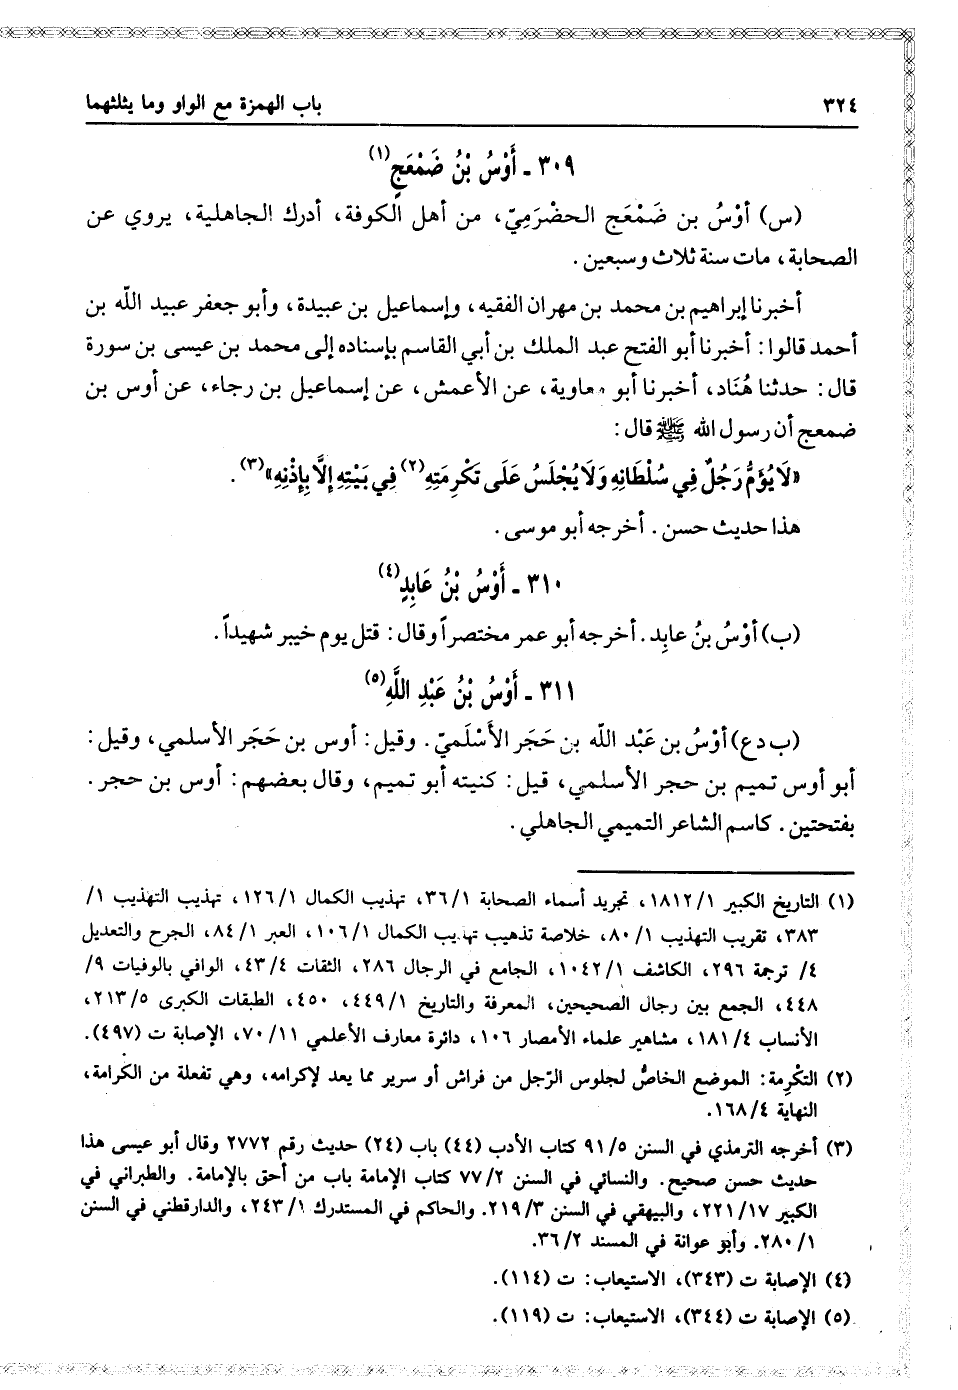 ٣٢٤
باب الهمزة مع الواو وما يثلثهما
٣٠٩ ـ أَوْسُ بْنُ ضَمْعَجٍ(١)
(س) أوْسُ بن ضَمْعَج الحضْرَمِيّ، من أهل الكوفة، أدرك الجاهلية، يروي عن
الصحابة، مات سنة ثلاث وسبعين.
أخبرنا إبراهيم بن محمد بن مهران الفقيه، وإسماعيل بن عبيدة، وأبو جعفر عبيد الله بن
أحمد قالوا: أخبرنا أبو الفتح عبد الملك بن أبي القاسم بإسناده إلى محمد بن عيسى بن سورة
قال: حدثنا هُنَاد، أخبرنا أبو معاوية، عن الأعمش، عن إسماعيل بن رجاء، عن أوس بن
ضمعج أن رسول الله ﷺ قال:
«لَا يُؤَمُّ رَجُلٌ فِي سُلْطَانِهِ وَلَا يُجْلَسُ عَلَى تَكْرِمَتِهِ(٢) فِي بَيْتِهِ إلَّا بِإِذْنِهِ»(٣).
هذا حديث حسن. أخرجه أبو موسى.
٣١٠ ـ أَوْسُ بْنُ عَابِدٍ(٤)
(ب) أوْسُ بنُ عابِد. أخرجه أبو عمر مختصراً وقال: قتل يوم خيبر شهيداً.
٣١١ ـ أَوْسُ بْنُ عَبْدِ اللَّهِ(٥)
(ب د ع) أوْسُ بن عَبْد الله بن حَجَر الأَسْلَميّ. وقيل: أوس بن حَجَر الأسلمي، وقيل:
أبو أوس تميم بن حجر الأسلمي، قيل: كنيته أبو تميم، وقال بعضهم: أوس بن حجر.
بفتحتين. كاسم الشاعر التميمي الجاهلي.
(١) التاريخ الكبير ١٨١٢/١، تجريد أسماء الصحابة ٣٦/١، تهذيب الكمال ١٢٦/١، تهذيب التهذيب ١/
٣٨٣، تقريب التهذيب ٨٠/١، خلاصة تذهيب تهذيب الكمال ١٠٦/١، العبر ٨٤/١، الجرح والتعديل
٤/ ترجمة ٢٩٦، الكاشف ١٠٤٢/١، الجامع في الرجال ٢٨٦، الثقات ٤٣/٤، الوافي بالوفيات ٩/
٤٤٨، الجمع بين رجال الصحيحين، المعرفة والتاريخ ٤٤٩/١، ٤٥٠، الطبقات الكبرى ٢١٣/٥،
الأنساب ١٨١/٤، مشاهير علماء الأمصار ١٠٦، دائرة معارف الأعلمي ٧٠/١١، الإصابة ت (٤٩٧).
(٢) التكْرِمة: الموضع الخاصُّ لجلوس الرّجل من فراش أو سرير مما يعد لإكرامه، وهي تفعلة من الكرامة،
النهاية ١٦٨/٤.
(٣) أخرجه الترمذي في السنن ٩١/٥ كتاب الأدب (٤٤) باب (٢٤) حديث رقم ٢٧٧٢ وقال أبو عيسى هذا
حديث حسن صحيح. والنسائي في السنن ٧٧/٢ كتاب الإمامة باب من أحق بالإمامة. والطبراني في
الكبير ٢٢١/١٧، والبيهقي في السنن ٢١٩/٣. والحاكم في المستدرك ٢٤٣/١، والدارقطني في السنن
٢٨٠/١. وأبو عوانة في المسند ٣٦/٢.
(٤) الإصابة ت (٣٤٣)، الاستيعاب: ت (١١٤).
(٥) الإصابة ت (٣٤٤)، الاستيعاب: ت (١١٩).